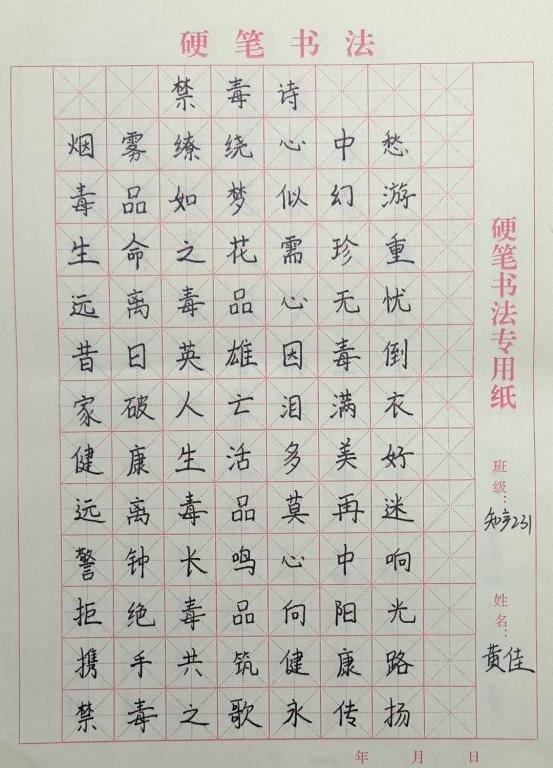 硬笔书法
禁毒诗
烟雾缭绕心中愁
毒品如梦似幻游
生命之花需珍重
远离毒品心无忧
昔日英雄因毒倒
家破人亡泪满衣
健康生活多美好
远离毒品莫再迷
警钟长鸣心中响
拒绝毒品向阳光
携手共筑健康路
禁毒之歌永传扬
硬笔书法专用纸
班级：知产231
姓名：黄佳
年 月 日